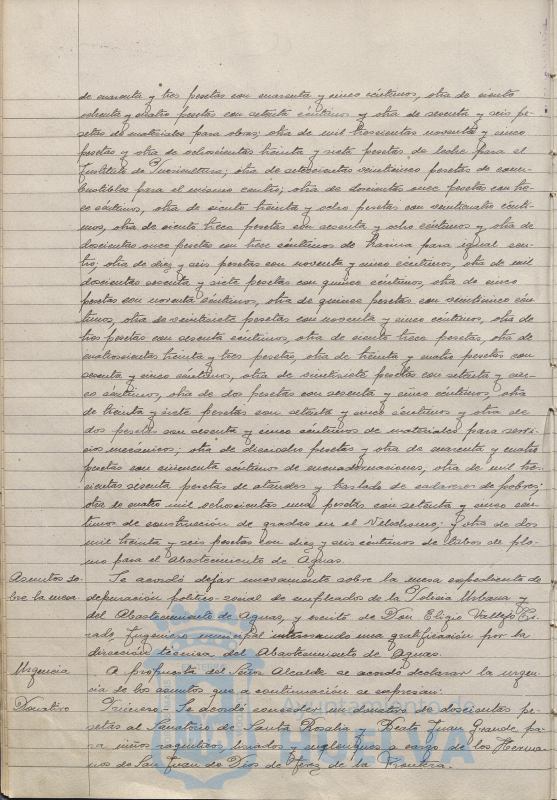 de cuarenta y tres pesetas con cuarenta y cinco céntimos, otra de ciento
ochenta y cuatro pesetas con setenta céntimos y otra de sesenta y seis pe-
setas de materiales para obras; otra de mil trescientas noventa y cinco
pesetas y otra de ochocientas treinta y siete pesetas de leche para el
Instituto de Puericultura; otra de setecientas veinticinco pesetas de com-
bustibles para el mismo centro; otra de doscientas once pesetas con tre-
ce céntimos, otra de ciento treinta y ocho pesetas con veinticuatro cénti-
mos, otra de ciento trece pesetas con sesenta y ocho céntimos y otra de
doscientas once pesetas con trece céntimos de harina para igual cen-
tro; otra de diez y seis pesetas con noventa y cinco céntimos, otra de mil
doscientas sesenta y siete pesetas con quince céntimos, otra de cinco
pesetas con noventa céntimos, otra de quince pesetas con veinticinco cén-
timos, otra de veintisiete pesetas con noventa y cinco céntimos, otra de
tres pesetas con sesenta céntimos, otra de ciento trece pesetas, otra de
cuatrocientas treinta y tres pesetas, otra de treinta y cuatro pesetas con
sesenta y cinco céntimos, otra de veintisiete pesetas con setenta y cin-
co céntimos, otra de dos pesetas con sesenta y cinco céntimos, otra
de treinta y siete pesetas con setenta y cinco céntimos y otra de
dos pesetas con sesenta y cinco céntimos de materiales para servi-
cios mecánicos; otra de diecinueve pesetas y otra de cuarenta y cuatro
pesetas con cincuenta céntimos de encuadernaciones, otra de mil tres-
cientas sesenta pesetas de ataudes y traslado de cadáveres de pobres;
otra de cuatro mil ochocientas una pesetas con setenta y cinco cén-
timos de construcción de gradas en el Velódromo; y otra de dos
mil treinta y seis pesetas con diez y seis céntimos de tubos de plo-
mo para el Abastecimiento de Aguas.
Asuntos so- Se acordó dejar nuevamente sobre la mesa expediente de
bre la mesa depuración político-social de empleados de la Policía Urbana y
del Abastecimiento de Aguas, y escrito de Don Eligio Vallejo Ti-
rado Ingeniero municipal interesando una gratificación por la
dirección técnica del Abastecimiento de Aguas.
Urgencia A propuesta del Señor Alcalde se acordó declarar la urgen-
cia de los asuntos que a continuación se expresan:
Donativo Primero.- Se acordó conceder un donativo de doscientas pe-
setas al Sanatorio de Santa Rosalía y Beato Juan Grande pa-
ra niños raquíticos, lisiados y escrofulosos a cargo de los Herma-
nos de San Juan de Dios de Jerez de la Frontera.